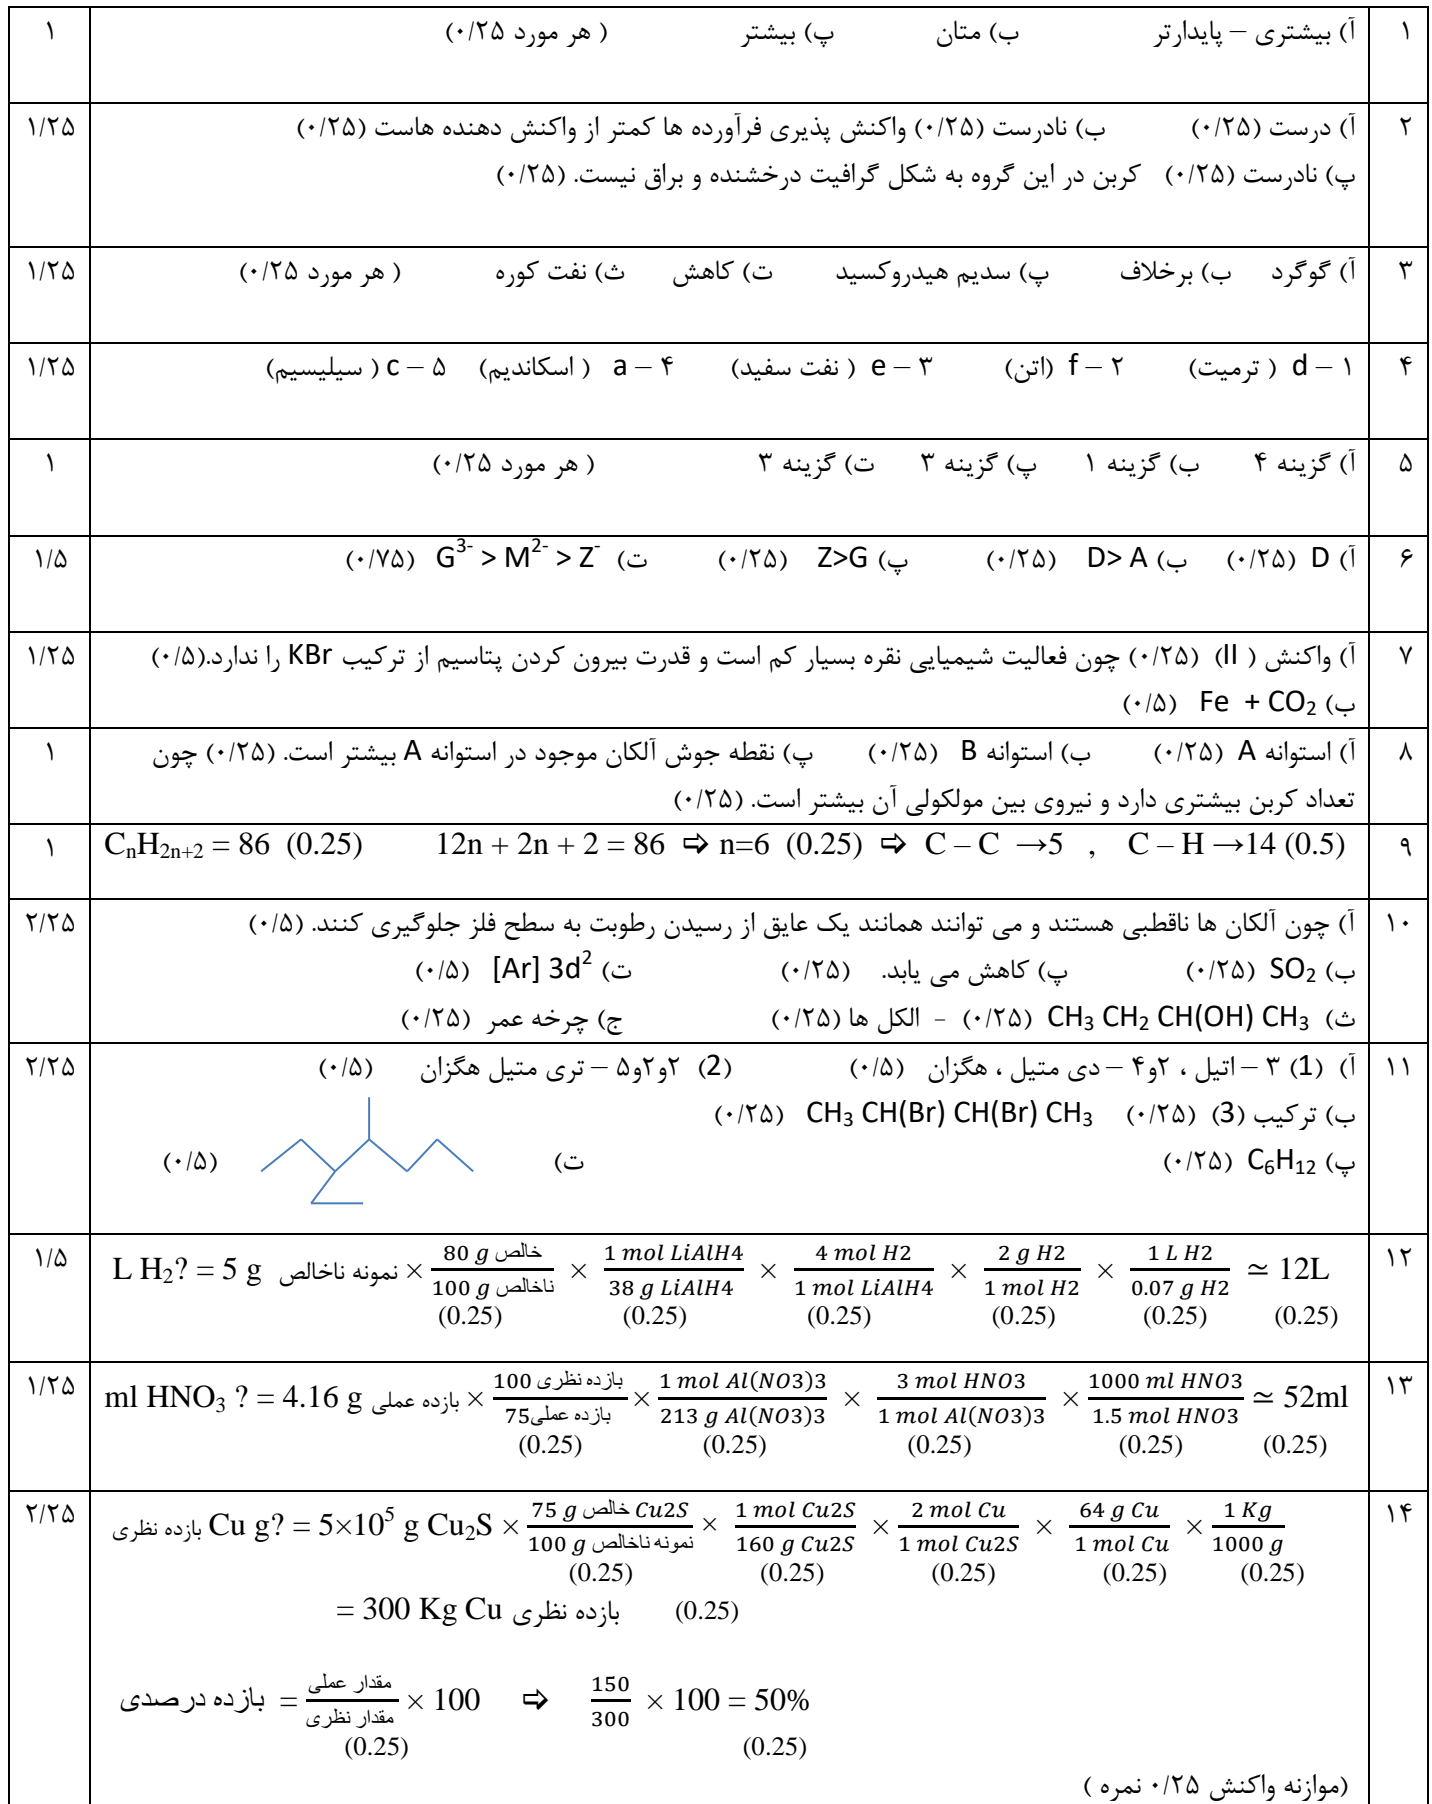 ۱ آ) بیشتری – پایدارتر ب) متان پ) بیشتر ( هر مورد ۰/۲۵) ۱
۲ آ) درست (۰/۲۵) ب) نادرست (۰/۲۵) واکنش پذیری فرآورده ها کمتر از واکنش دهنده هاست (۰/۲۵) ۱/۲۵
پ) نادرست (۰/۲۵) کربن در این گروه به شکل گرافیت درخشنده و براق نیست. (۰/۲۵)
۳ آ) گوگرد ب) برخلاف پ) سدیم هیدروکسید ت) کاهش ث) نفت کوره ( هر مورد ۰/۲۵) ۱/۲۵
۴ ۱ – d ( ترمیت) ۲ – f (اتن) ۳ – e ( نفت سفید) ۴ – a ( اسکاندیم) ۵ – c ( سیلیسیم) ۱/۲۵
۵ آ) گزینه ۴ ب) گزینه ۱ پ) گزینه ۳ ت) گزینه ۳ ( هر مورد ۰/۲۵) ۱
۶ آ) D (۰/۲۵) ب) D> A (۰/۲۵) پ) Z>G (۰/۲۵) ت) G³⁻ > M²⁻ > Z⁻ (۰/۷۵) ۱/۵
۷ آ) واکنش ( II) (۰/۲۵) چون فعالیت شیمیایی نقره بسیار کم است و قدرت بیرون کردن پتاسیم از ترکیب KBr را ندارد.(۰/۵) ۱/۲۵
ب) Fe + CO₂ (۰/۵)
۸ آ) استوانه A (۰/۲۵) ب) استوانه B (۰/۲۵) پ) نقطه جوش آلکان موجود در استوانه A بیشتر است. (۰/۲۵) چون ۱
تعداد کربن بیشتری دارد و نیروی بین مولکولی آن بیشتر است. (۰/۲۵)
۹ CₙH₂ₙ₊₂ = 86 (0.25) 12n + 2n + 2 = 86 ⇨ n=6 (0.25) ⇨ C – C →5 , C – H →14 (0.5) ۱
۱۰ آ) چون آلکان ها ناقطبی هستند و می توانند همانند یک عایق از رسیدن رطوبت به سطح فلز جلوگیری کنند. (۰/۵) ۲/۲۵
ب) SO₂ (۰/۲۵) پ) کاهش می یابد. (۰/۲۵) ت) [Ar] 3d² (۰/۵)
ث) CH₃ CH₂ CH(OH) CH₃ (۰/۲۵) - الکل ها (۰/۲۵) ج) چرخه عمر (۰/۲۵)
۱۱ آ) (1) ۳ – اتیل ، ۲و۴ – دی متیل ، هگزان (۰/۵) (2) ۲و۲و۵ – تری متیل هگزان (۰/۵) ۲/۲۵
ب) ترکیب (3) (۰/۲۵) CH₃ CH(Br) CH(Br) CH₃ (۰/۲۵)
پ) C₆H₁₂ (۰/۲۵) ت) (۰/۵)
۱۲ L H₂? = 5 g نمونه ناخالص × 80 g خالص / 100 g ناخالص × 1 mol LiAlH4 / 38 g LiAlH4 × 4 mol H2 / 1 mol LiAlH4 × 2 g H2 / 1 mol H2 × 1 L H2 / 0.07 g H2 ≃ 12L ۱/۵
(0.25) (0.25) (0.25) (0.25) (0.25) (0.25)
۱۳ ml HNO₃ ? = 4.16 g بازده عملی × 100 بازده نظری / 75 بازده عملی × 1 mol Al(NO3)3 / 213 g Al(NO3)3 × 3 mol HNO3 / 1 mol Al(NO3)3 × 1000 ml HNO3 / 1.5 mol HNO3 ≃ 52ml ۱/۲۵
(0.25) (0.25) (0.25) (0.25) (0.25)
۱۴ بازده نظری Cu g? = 5×10⁵ g Cu₂S × 75 g خالص Cu2S / 100 g نمونه ناخالص × 1 mol Cu2S / 160 g Cu2S × 2 mol Cu / 1 mol Cu2S × 64 g Cu / 1 mol Cu × 1 Kg / 1000 g ۲/۲۵
(0.25) (0.25) (0.25) (0.25) (0.25)
= 300 Kg Cu بازده نظری (0.25)
بازده درصدی = مقدار عملی / مقدار نظری × 100 ⇨ 150 / 300 × 100 = 50%
(0.25) (0.25)
(موازنه واکنش ۰/۲۵ نمره )